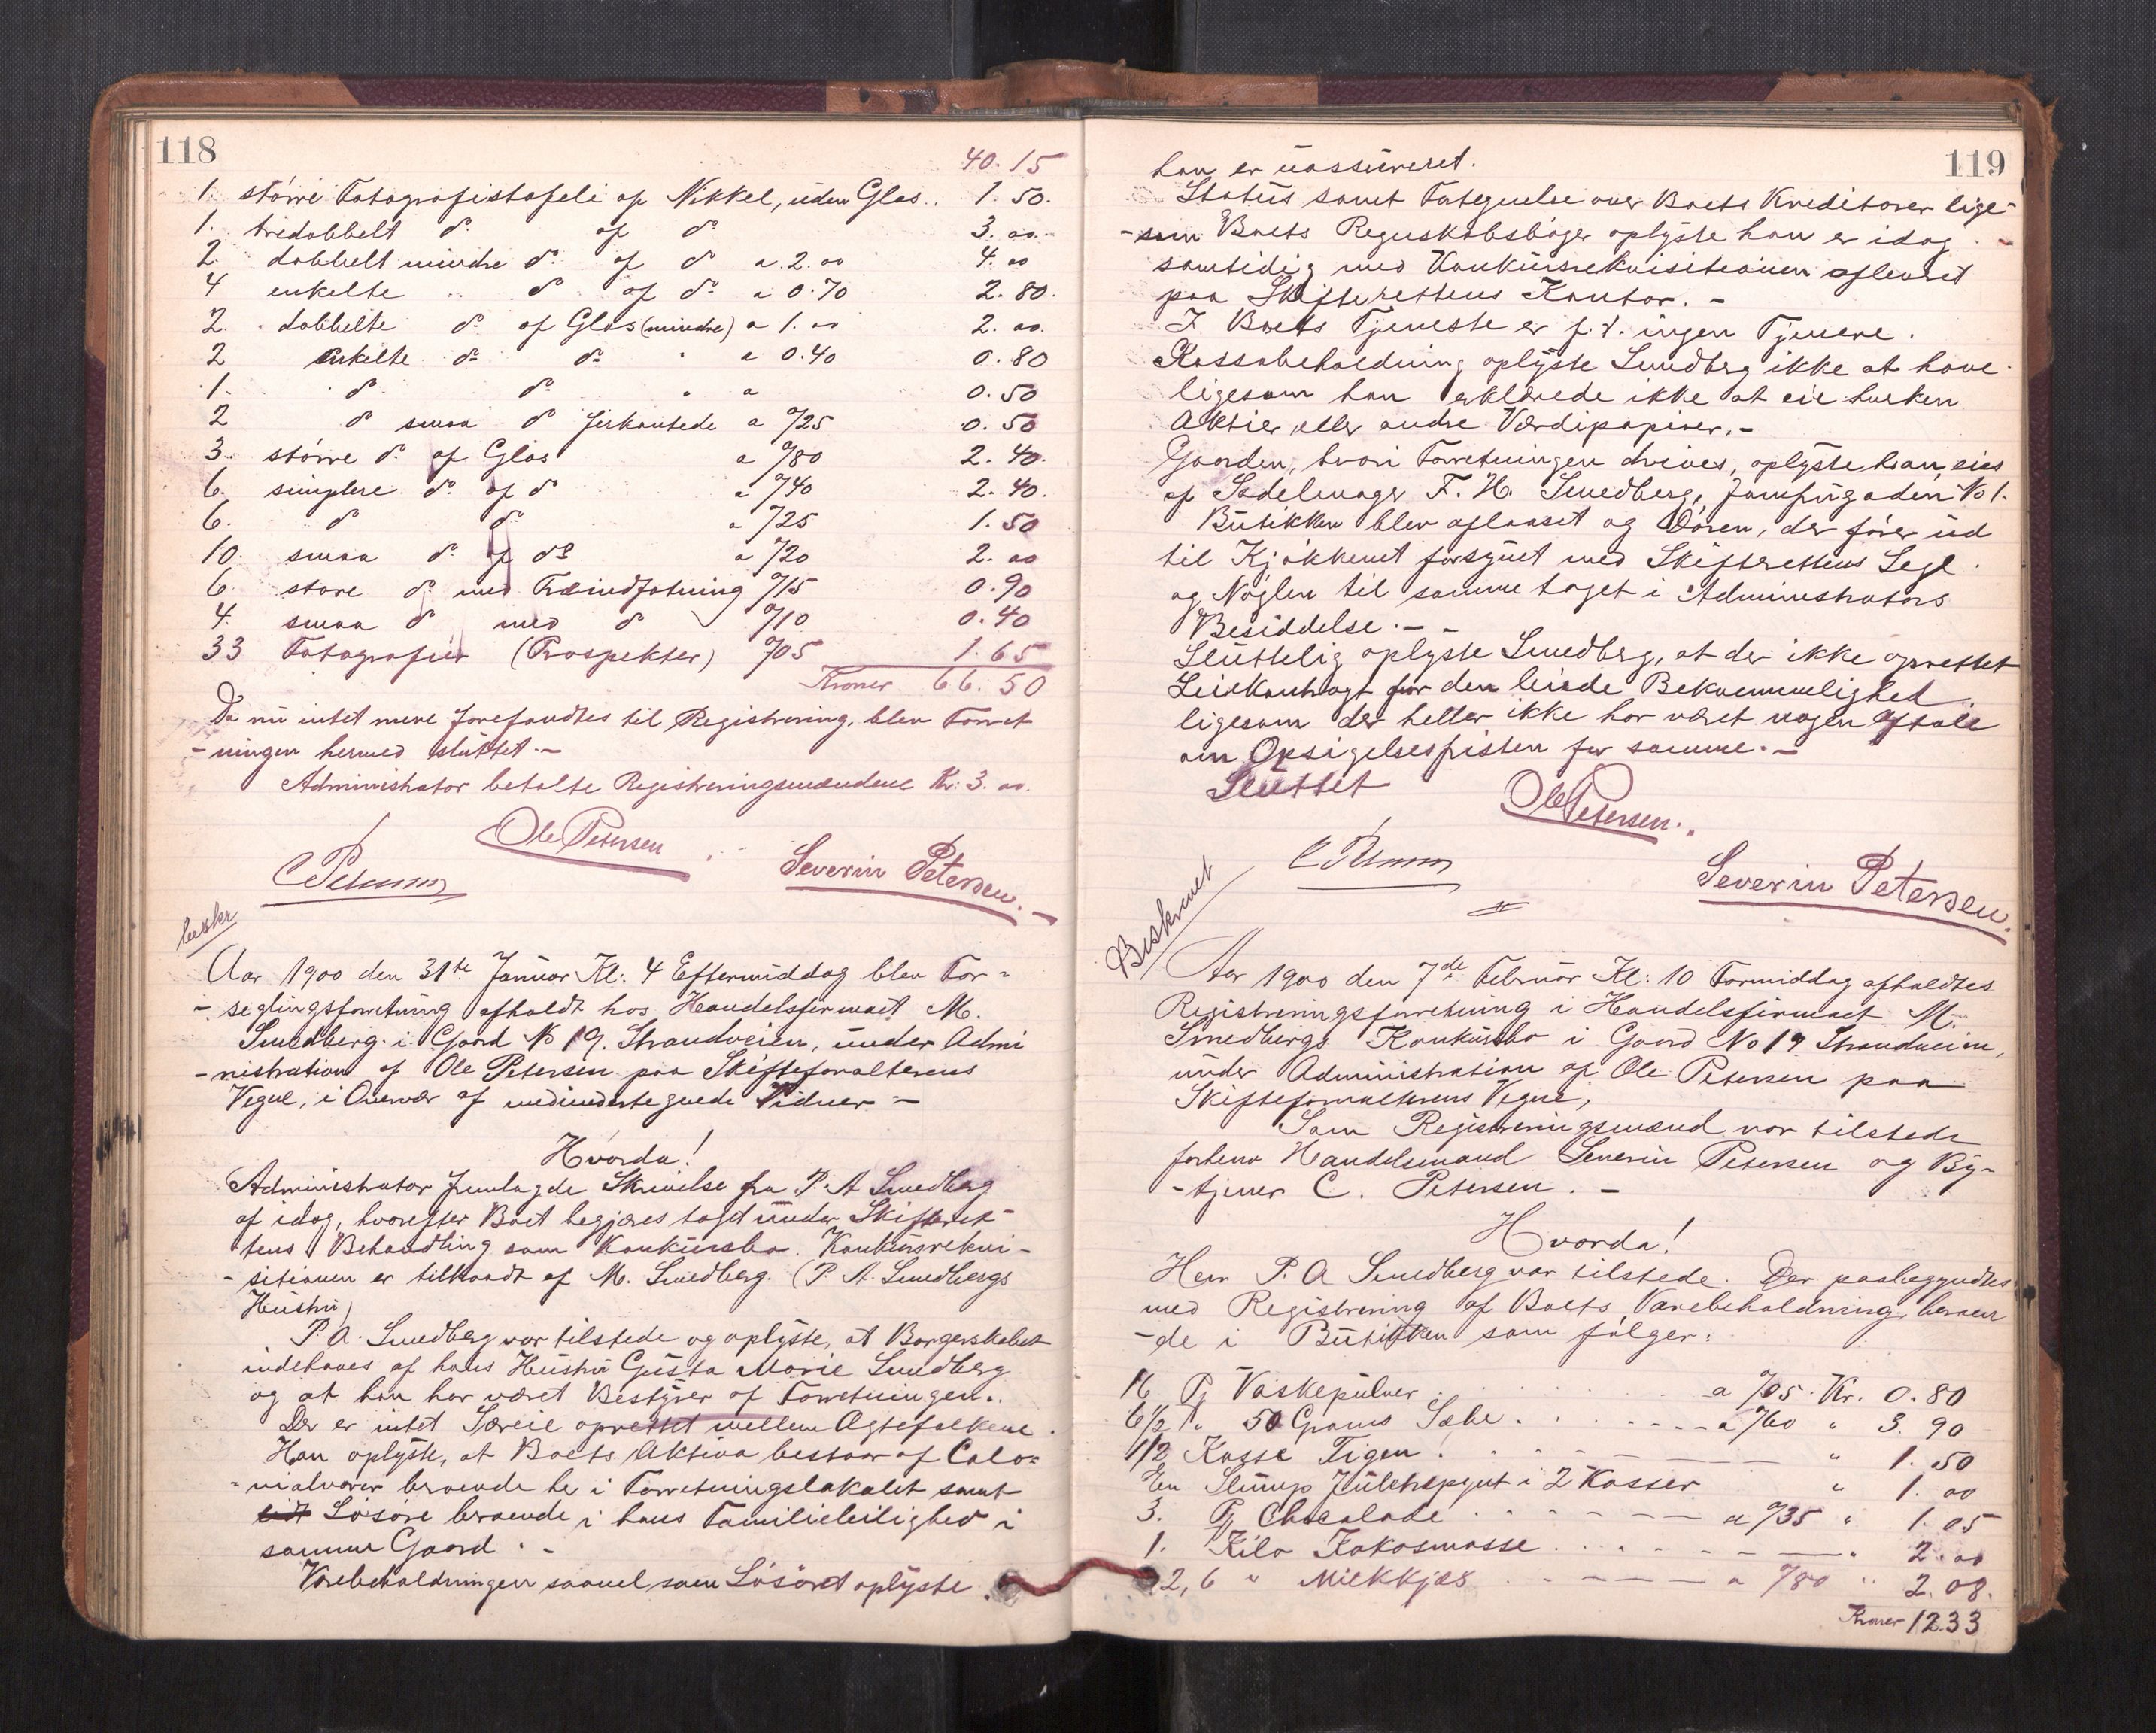 118
40.15
1. større Fotografistafeli af Nikkel, uden Glas.. 1.50.
1. tredobbelt do. af do. 3.00.-
2. dobbelt mindre do. af do a 2.00 4.00
4 enkelte .. do af do. a 0.70 2.80.
2. dobbelte do. af Glas (mindre) a 1.00 2.00.
2 enkelte do do " a 0.40 0.80
1. do. do. " a 0.50
2 do smaa do firkantede a 0/25 0.50
3. større do. af Glas a 0/80 2.40.
6. simplere do. af do a 0/40 2.40.
6. do do. a 0/25 1.50
10. smaa do. af do a 0/20 2.00
6 store do med Træindfatning 0/15 0.90
4. smaa do med do 0/10 0.40
33 Fotografier (Prospekter) 0/05 1.65
Kroner 66.50
Da nu intet mere forefandtes til Registrering, blev Forret
-ningen hermed sluttet.-
Administrator betalte Registreringsmændene Kr. 3.00.
Ole Petersen
C Petersen
Severin Petersen.
beskr
Aar 1900 den 31te Januar Kl: 4 Eftermiddag blev For-
-seglingsforretning afholdt hos Handelsfirmaet M.
Smedberg i Gaard No 19. Strandveien, under Admi
-nistration af Ole Petersen paa Skifteforvalterens
Vegne, i Overvær af medundertegnede Vidner -
Hvorda!
Administrator fremlagde Skrivelse fra P. A Smedberg
af idag, hvorefter Boet begjæres taget under Skifteret-
tens Behandling som Konkursbo. Konkursrekvi-
-sitionen er tiltraadt af M. Smedberg. (P. A. Smedbergs
Hustru)
P. A. Smedberg var tilstede og oplyste, at Borgerskabet
indehaves af hans Hustru Gusta Marie Smedberg
og at han har været Bestyrer af Forretningen.
Der er intet Særeie oprettet mellem Ægtefolkene.
Han oplyste, at Boets Aktiva bestaar af Colo-
-nialvarer beroende her i Forretningslokalet samt
Løsøre beroende i hans Familieleilighed i
samme Gaard. -
Varebeholdningen saavel som Løsøret oplyste
119
han er uassureret.
Status samt Fortegnelse over Boets Kreditorer lige-
-som Boets Regnskabsbøger oplyste han er idag
samtidig med Konkursrekvisitionen afleveret
paa Skifterettens Kontor. -
I Boets Tjeneste er p. t. ingen Tjenere.
Kassabeholdning oplyste Smedberg ikke at have
ligesom han erklærede ikke at eie hverken
Aktier eller andre Værdipapirer. -
Gaarden, hvori Forretningen drives, oplyste han eies
af Sadelmager F. H. Smedberg, Jomfrugaden No 1.
Butikken blev aflaaset og Døren, der fører ud
til Kjøkkenet forsynet med Skifterettens Segl
og Nøglen til samme taget i Administrators
Besiddelse. - -
Sluttelig oplyste Smedberg, at der ikke oprettet
Leiekontragt for den leiede Bekvemmelighed
ligesom der heller ikke har været nogen Aftale
om Opsigelsesfristen for samme. -
Sluttet
Ole Petersen.
C Petersen
Severin Petersen.
Beskrevet
Aar 1900 den 7de Februar Kl: 10 Formiddag afholdtes
Registreringsforretning i Handelsfirmaet M.
Smedbergs Konkursbo i Gaard No 19 Strandveien,
under Administration af Ole Petersen paa
Skifteforvalterens Vegne,
Som Registreringsmænd var tilstede
forhenv Handelsmand Severin Petersen og By-
-tjener C. Petersen. -
Hvorda!
Herr P. A Smedberg var tilstede. Der paabegyndtes
med Registrering af Boets Varebeholdning, beroen
-de i Butikken som følger:
16 Pj Vaskepulver a 0/05. Kr. 0.80
6 1/2 " 50 Grams Sæbe a 0/60 " 3.90
1/2 Kasse Figen " 1.50
En Slump Juletrepynt i 2 Kasser " 1.00
3. Pj Chocolade a 0/35 " 1.05
1. Kilo Kokosmasse " 2.00
2,6 " Melkkjæs a 0/80 " 2.08.
Kroner 12.33